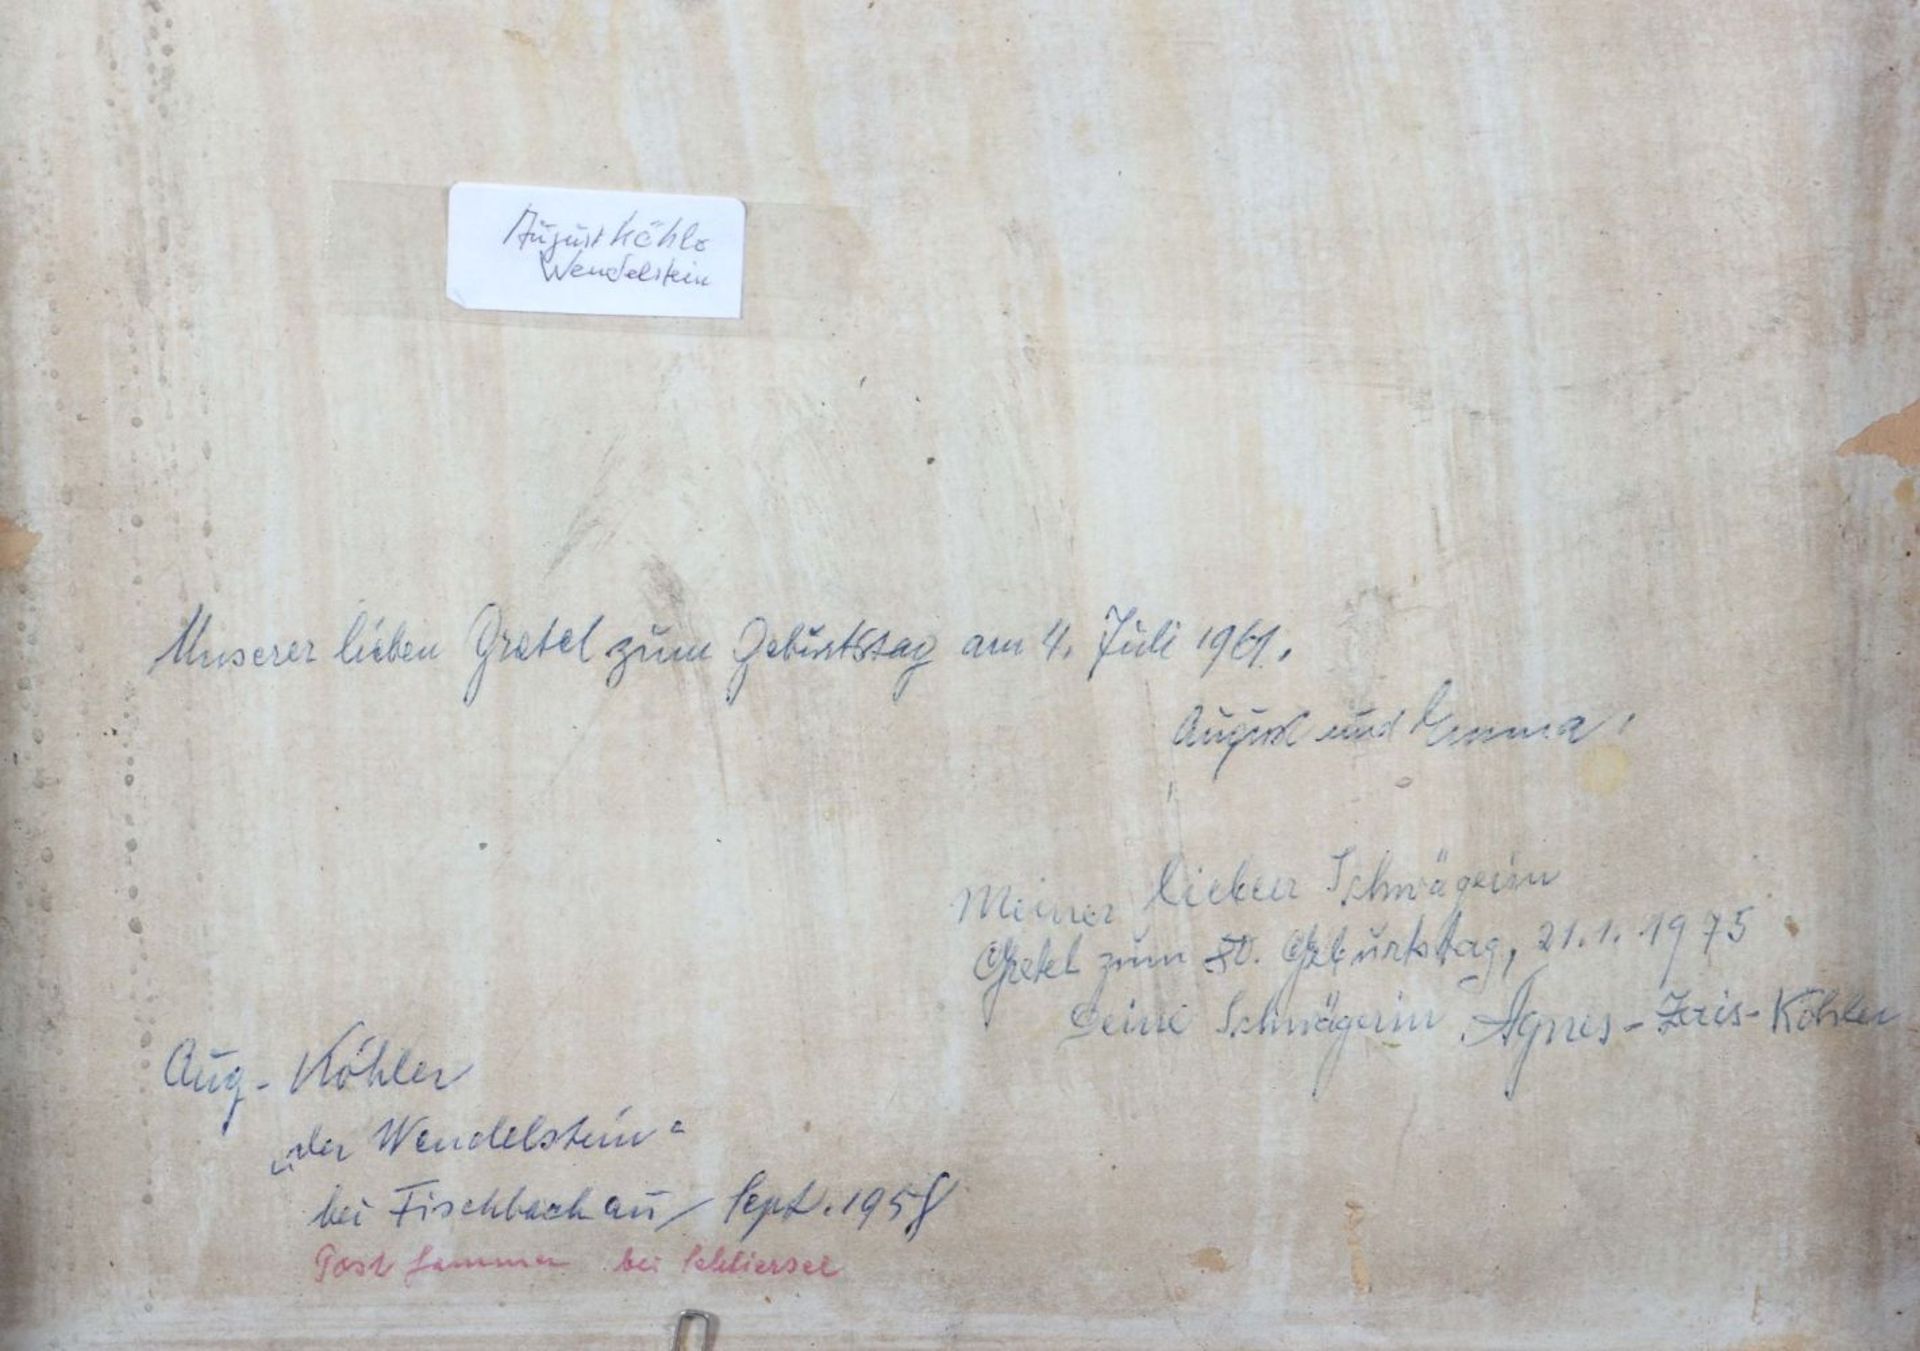 August Köhler
Wendelstein
Unserer lieben Gretel zum Geburtstag am 4. Juli 1961.
August und Emma.
Meiner lieben Schwägerin
Gretel zum 80. Geburtstag, 21.1.1975
Deine Schwägerin Agnes - - Köhler
Aug. Köhler
„der Wendelstein“
bei Fischbachau / Sept. 1958
Post Hammer bei Schliersee